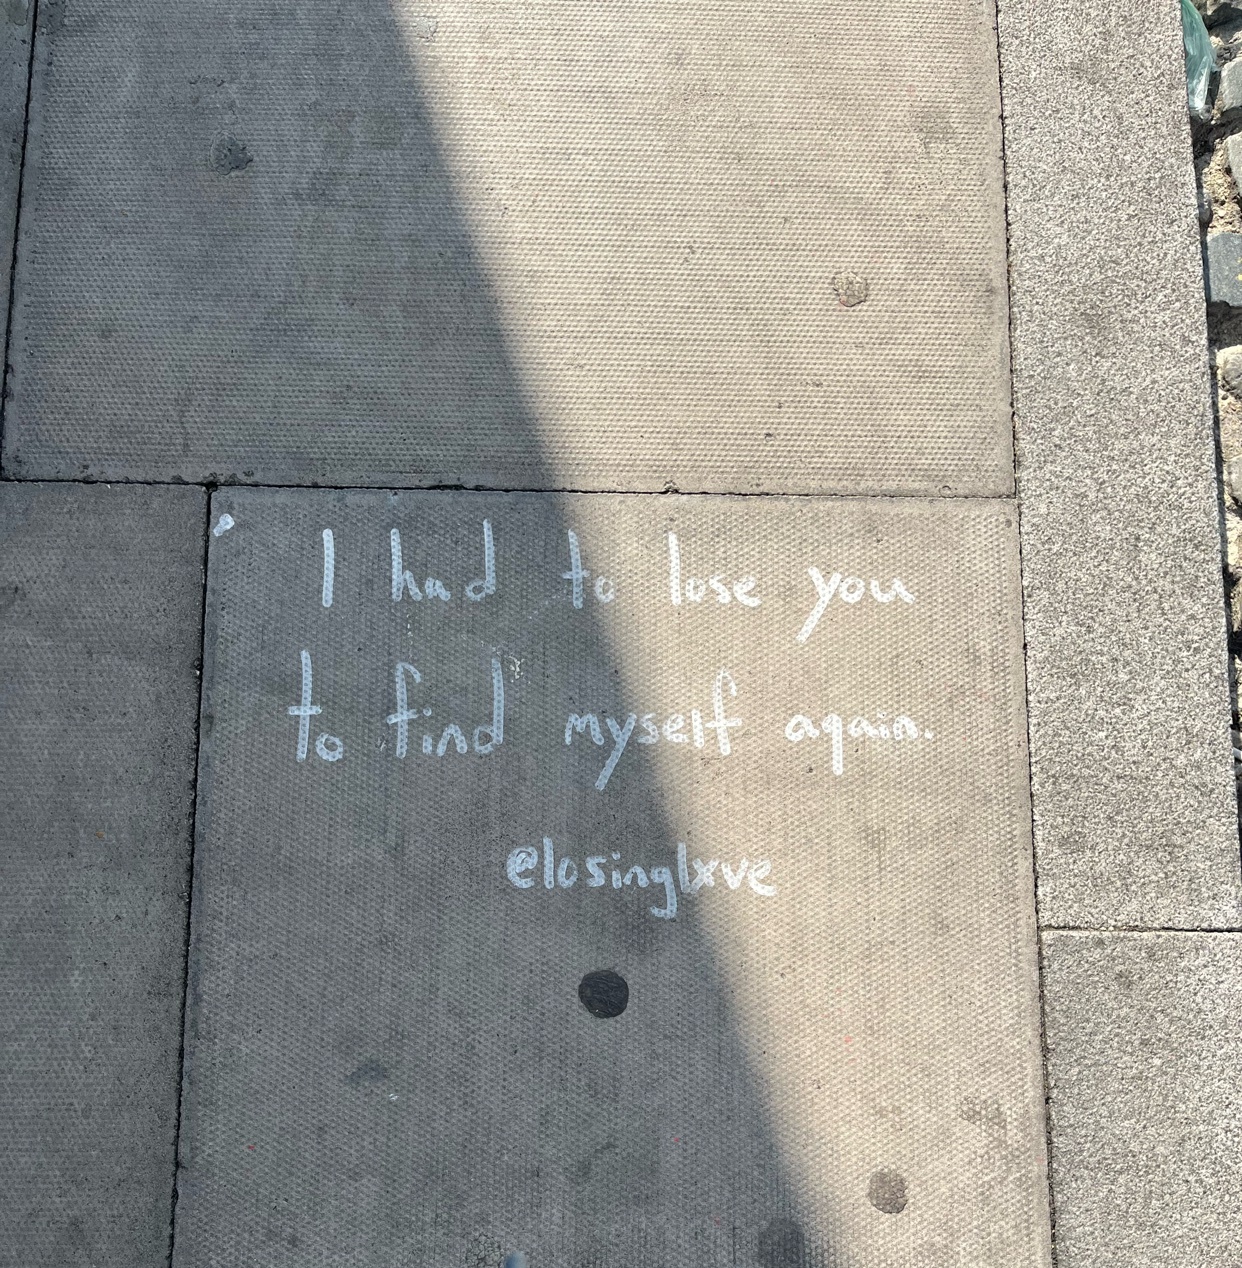 I had to lose you
to find myself again.
@losinglxve